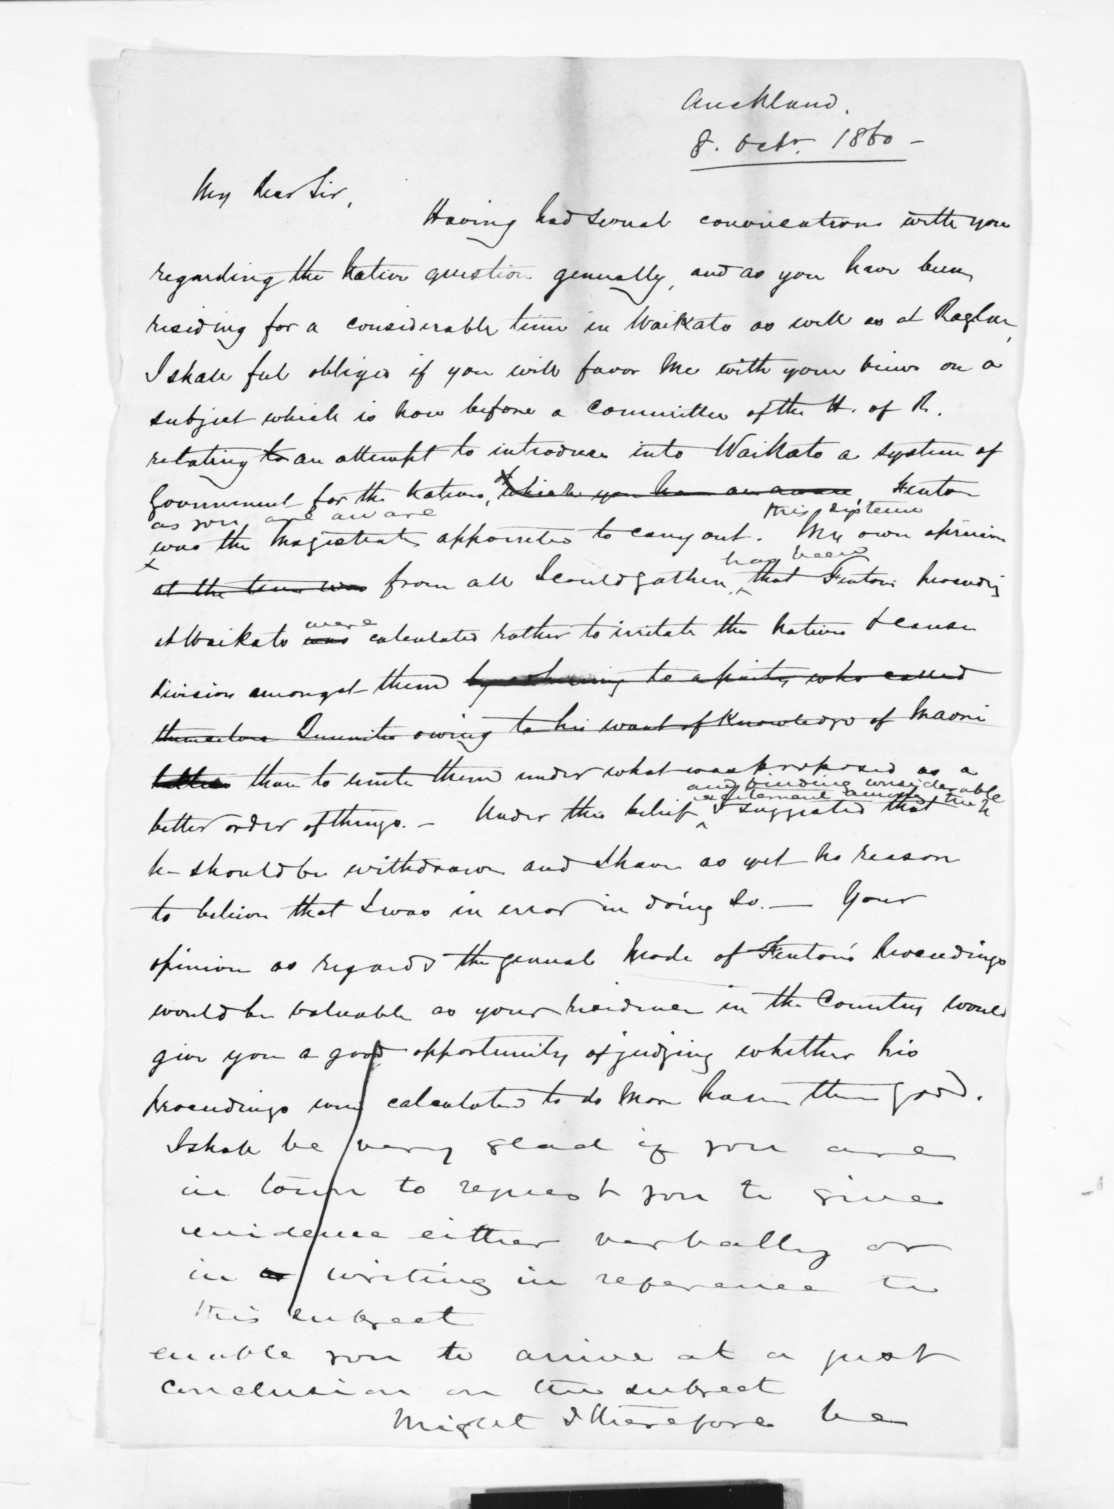 Auckland.
8. Octr. 1860 -
My Dear Sir,
Having had several conversations with you
regarding the Native question generally, and as you have been
residing for a considerable time in Waikato as well as at Raglan,
I shall feel obliged if you will favor me with your views on a
subject which is now before a Committee of the H. of R.
relating to an attempt to introduce into Waikato a system of
Government for the Natives, which you are aware, Fenton
as you are aware this system
was the Magistrate appointed to carry out. My own opinion
has been
at the time was from all I could gather, that Fentons proceedings
were
at Waikato was calculated rather to irritate the Natives & cause
division amongst them by to a party who called
themselves Queenites owing to his want of knowledge of Maori
than to unite them under what was proposed as a
and finding considerable
excitement among them
better order of things. - Under this belief I suggested that
he should be withdrawn and I have as yet no reason
to believe that I was in error in doing so. - Your
opinion as regards the general mode of Fenton's proceedings
would be valuable as your residence in the Country would
give you a good opportunity of judging whether his
proceedings were calculated to do more harm than good.
I shall be very glad if you are
in town to request you to give
evidence either verbally or
in or writing in reference to
this subject
enable you to arrive at a just
conclusion on the subject
Might I therefore be